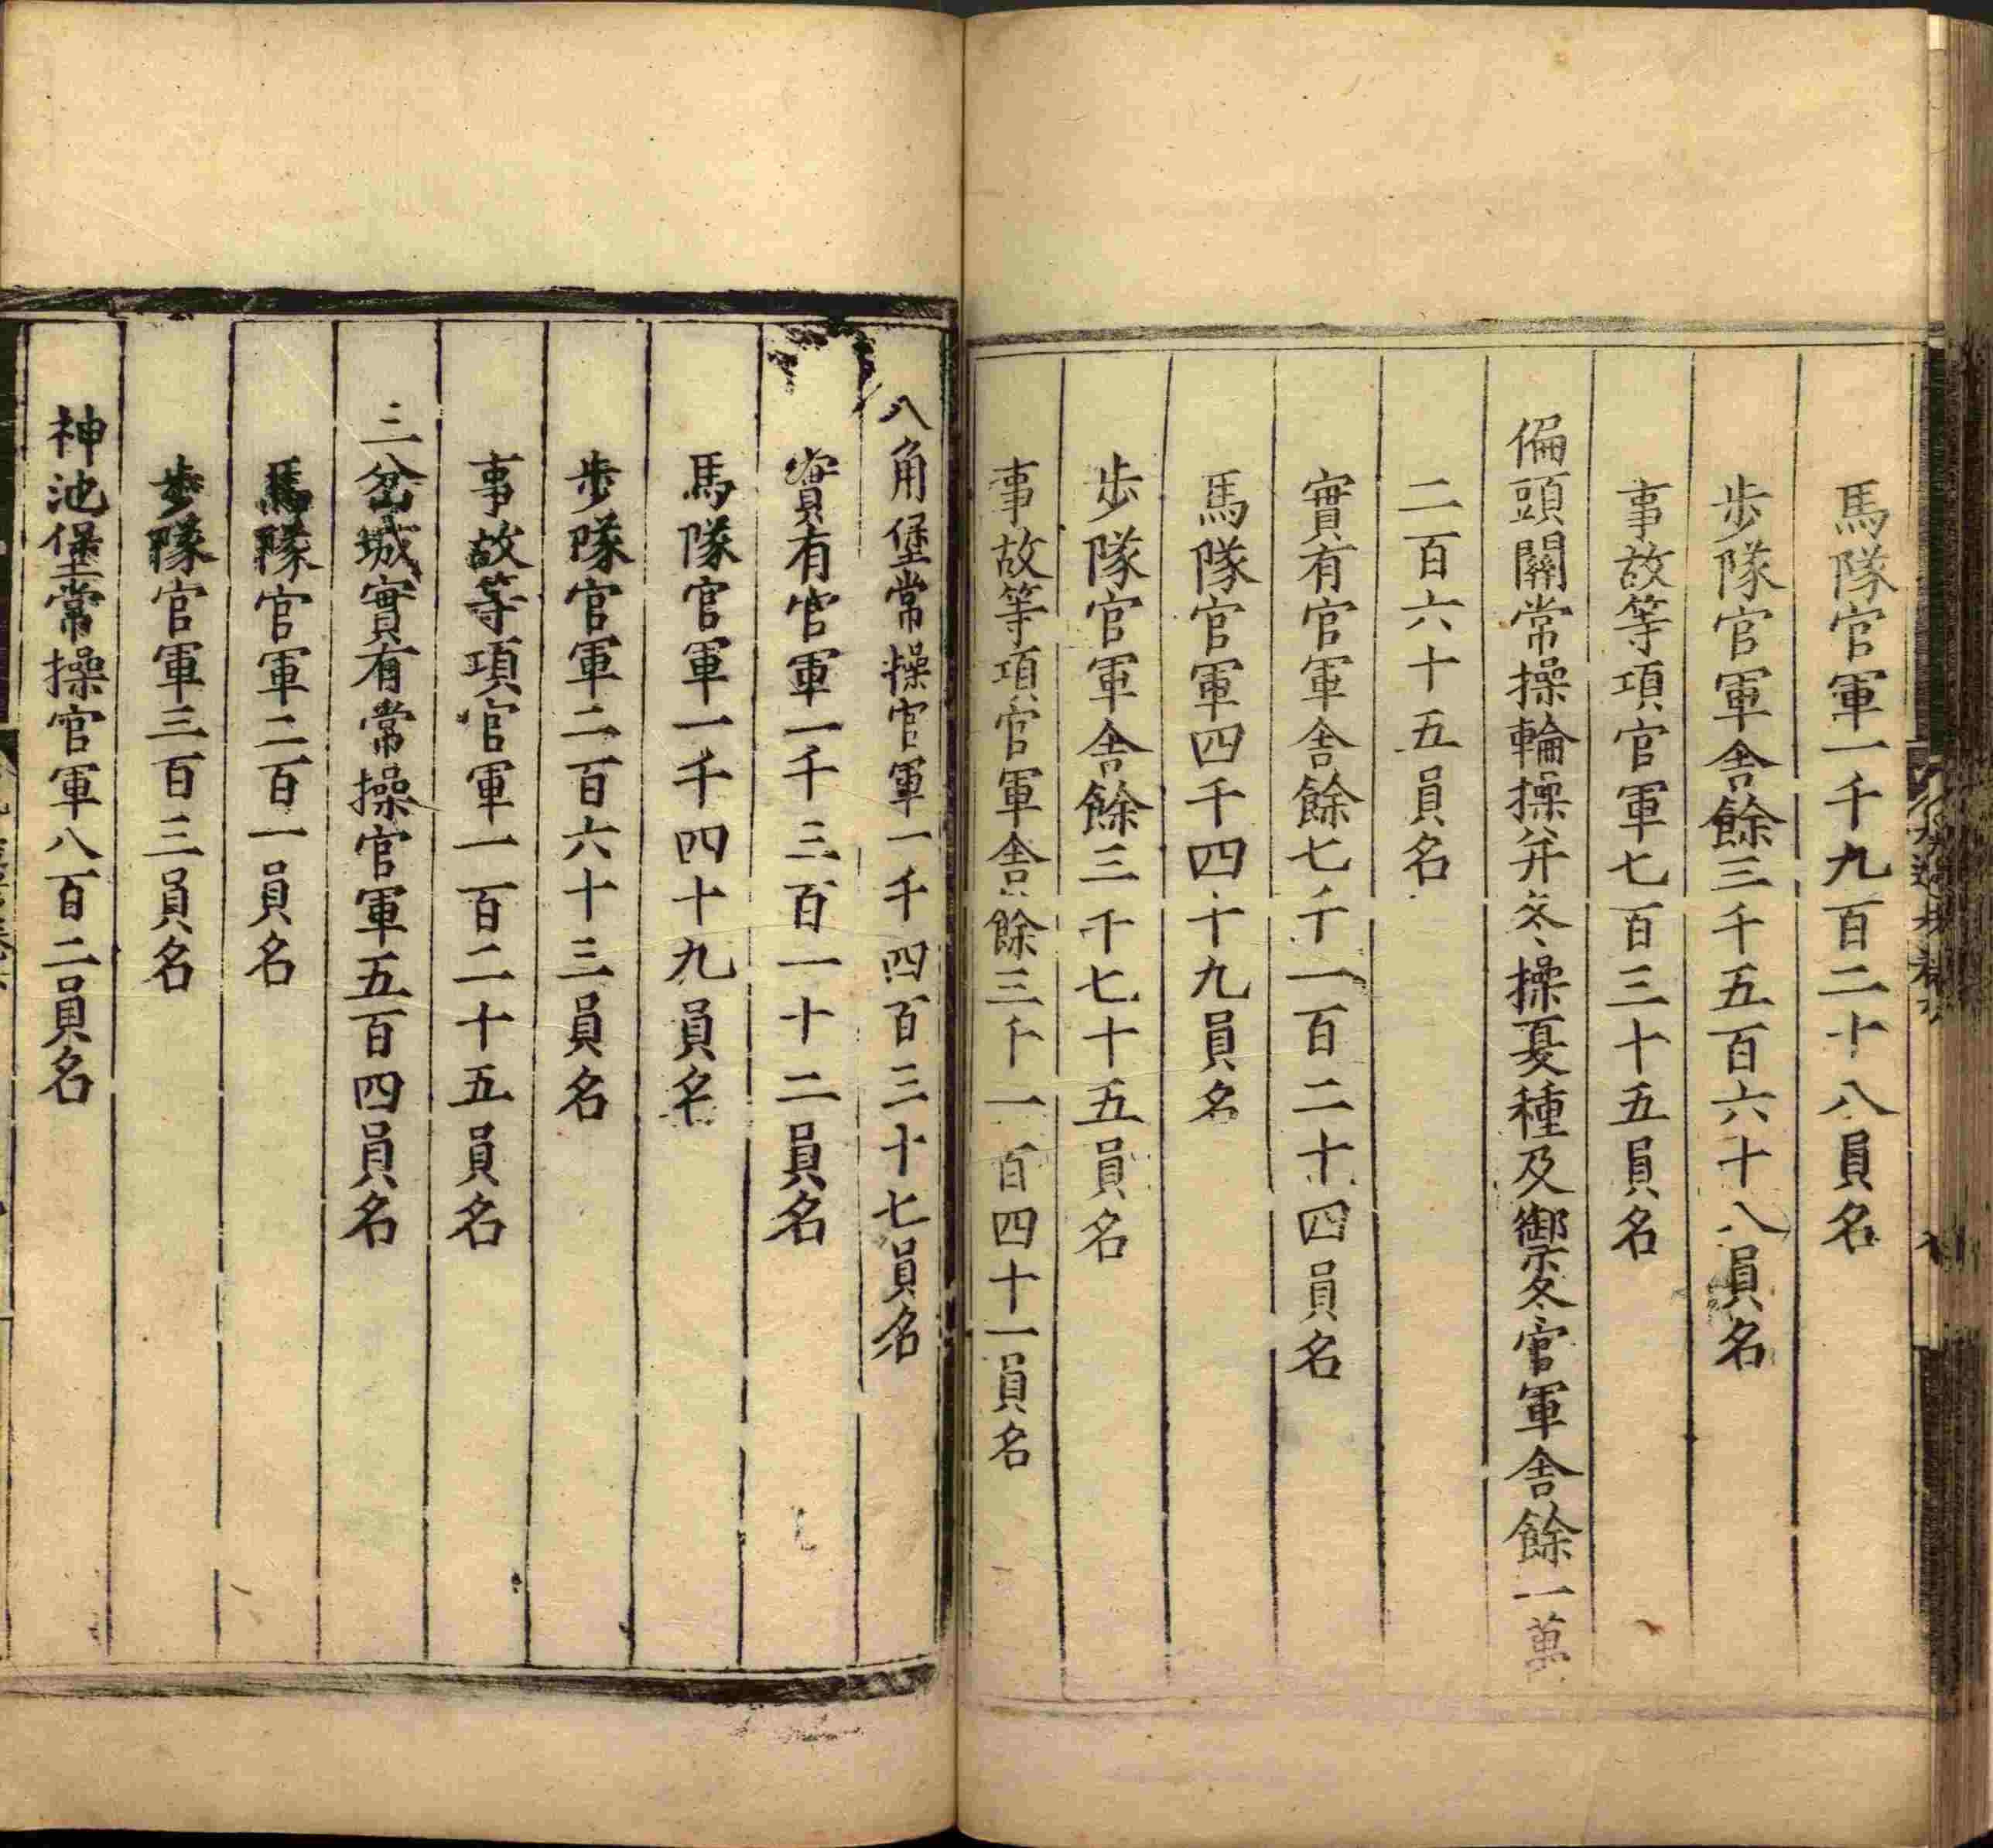 馬隊官軍一千九百二十八員名
步隊官軍舎餘三千五百六十八員名
事故等項官軍七百三十五員名
偏頭關常操輪操并冬操夏種及禦冬官軍舎餘一萬
二百六十五員名
實有官軍舎餘七千一百二十四員名
馬隊官軍四千四十九員名
步隊官軍舎餘三千七十五員名
事故等項官軍舎餘三千一百四十一員名
八角堡常操官軍一千四百三十七員名
實有官軍一千三百一十二員名
馬隊官軍一千四十九員名
步隊官軍二百六十三員名
事故等項官軍一百二十五員名
三岔城實有常操官軍五百四員名
馬隊官軍二百一員名
步隊官軍三百三員名
神池堡常操官軍八百二員名